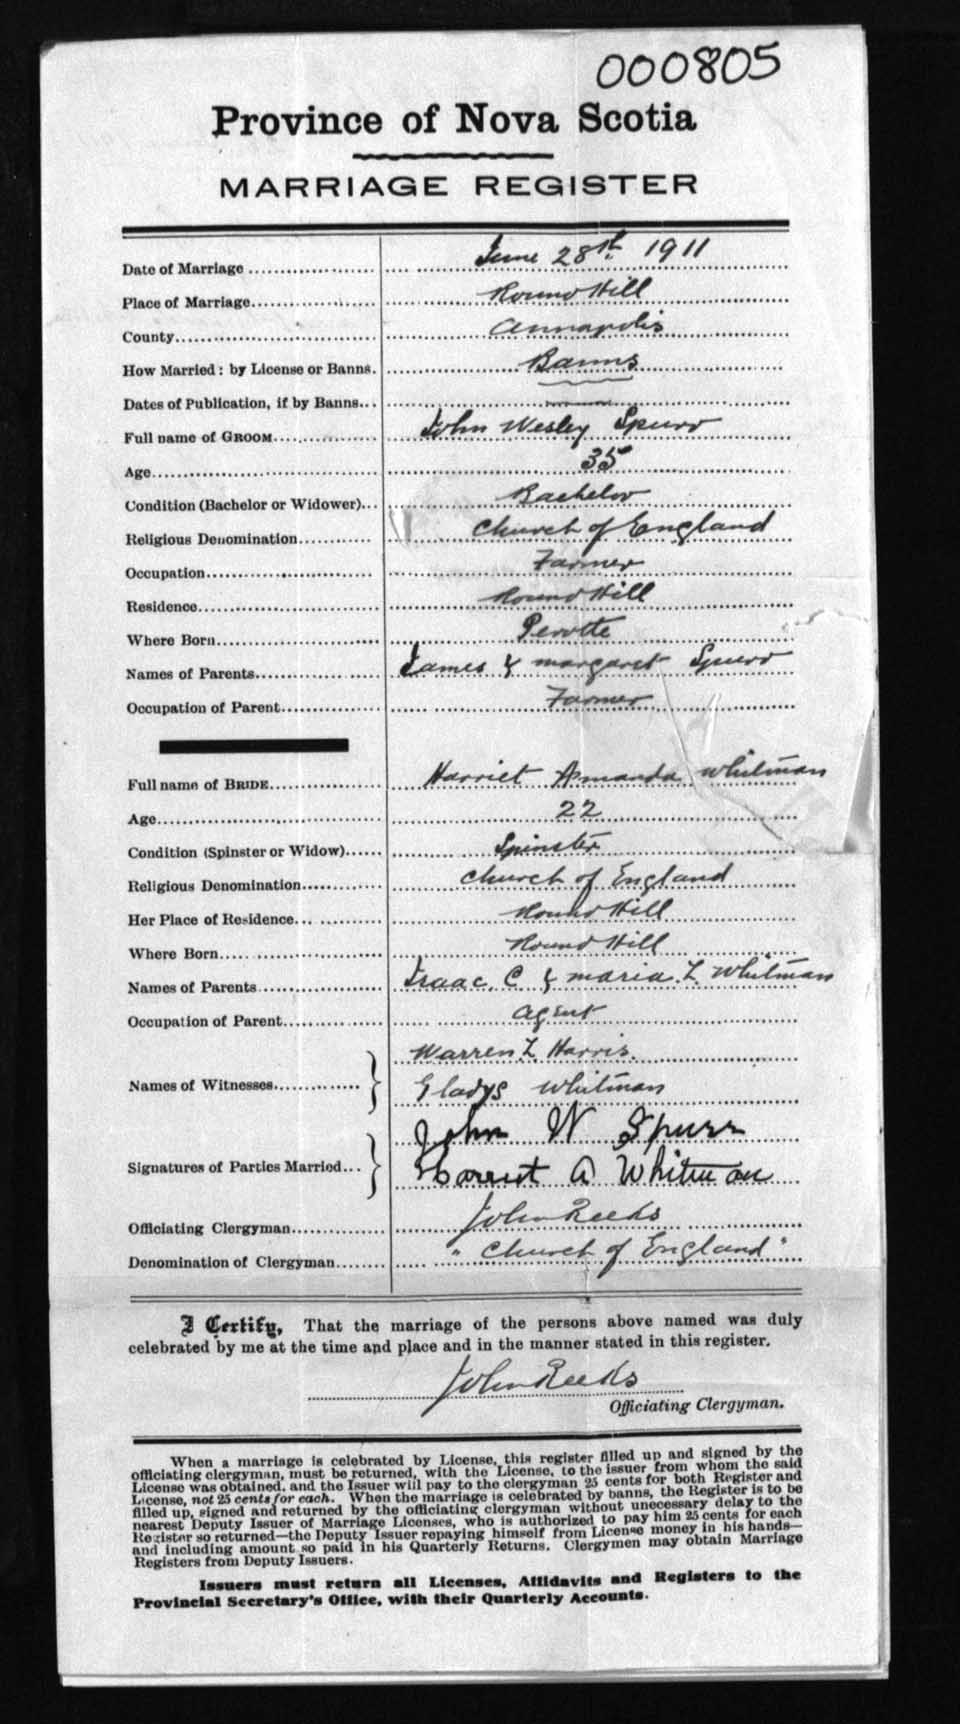 000805
Province of Nova Scotia
MARRIAGE REGISTER
Date of Marriage June 28th 1911
Place of Marriage Round Hill
County Annapolis
How Married: by License or Banns. Banns
Dates of Publication, if by Banns
Full name of GROOM John Wesley Spurr
Age 35
Condition (Bachelor or Widower) Bachelor
Religious Denomination Church of England
Occupation Farmer
Residence Round Hill
Where Born Perotte
Names of Parents James & Margaret Spurr
Occupation of Parent Farmer
Full name of BRIDE Harriet Amanda Whitman
Age 22
Condition (Spinster or Widow) Spinster
Religious Denomination Church of England
Her Place of Residence Round Hill
Where Born Round Hill
Names of Parents Isaac. C & Maria. L. Whitman
Occupation of Parent Agent
Warren L. Harris.
Names of Witnesses Gladys Whitman
John W Spurr
Signatures of Parties Married Harriet A Whitman
Officiating Clergyman John Reeks
Denomination of Clergyman "Church of England"
I Certify, That the marriage of the persons above named was duly
celebrated by me at the time and place and in the manner stated in this register.
John Reeks
Officiating Clergyman.
When a marriage is celebrated by License, this register filled up and signed by the
officiating clergyman, must be returned, with the License, to the issuer from whom the said
License was obtained, and the Issuer will pay to the clergyman 25 cents for both Register and
License, not 25 cents for each. When the marriage is celebrated by banns, the Register is to be
filled up, signed and returned by the officiating clergyman without unnecessary delay to the
nearest Deputy Issuer of Marriage Licenses, who is authorized to pay him 25 cents for each
Register so returned—the Deputy Issuer repaying himself from License money in his hands—
and including amount so paid in his Quarterly Returns. Clergymen may obtain Marriage
Registers from Deputy Issuers.
Issuers must return all Licenses, Affidavits and Registers to the
Provincial Secretary's Office, with their Quarterly Accounts.